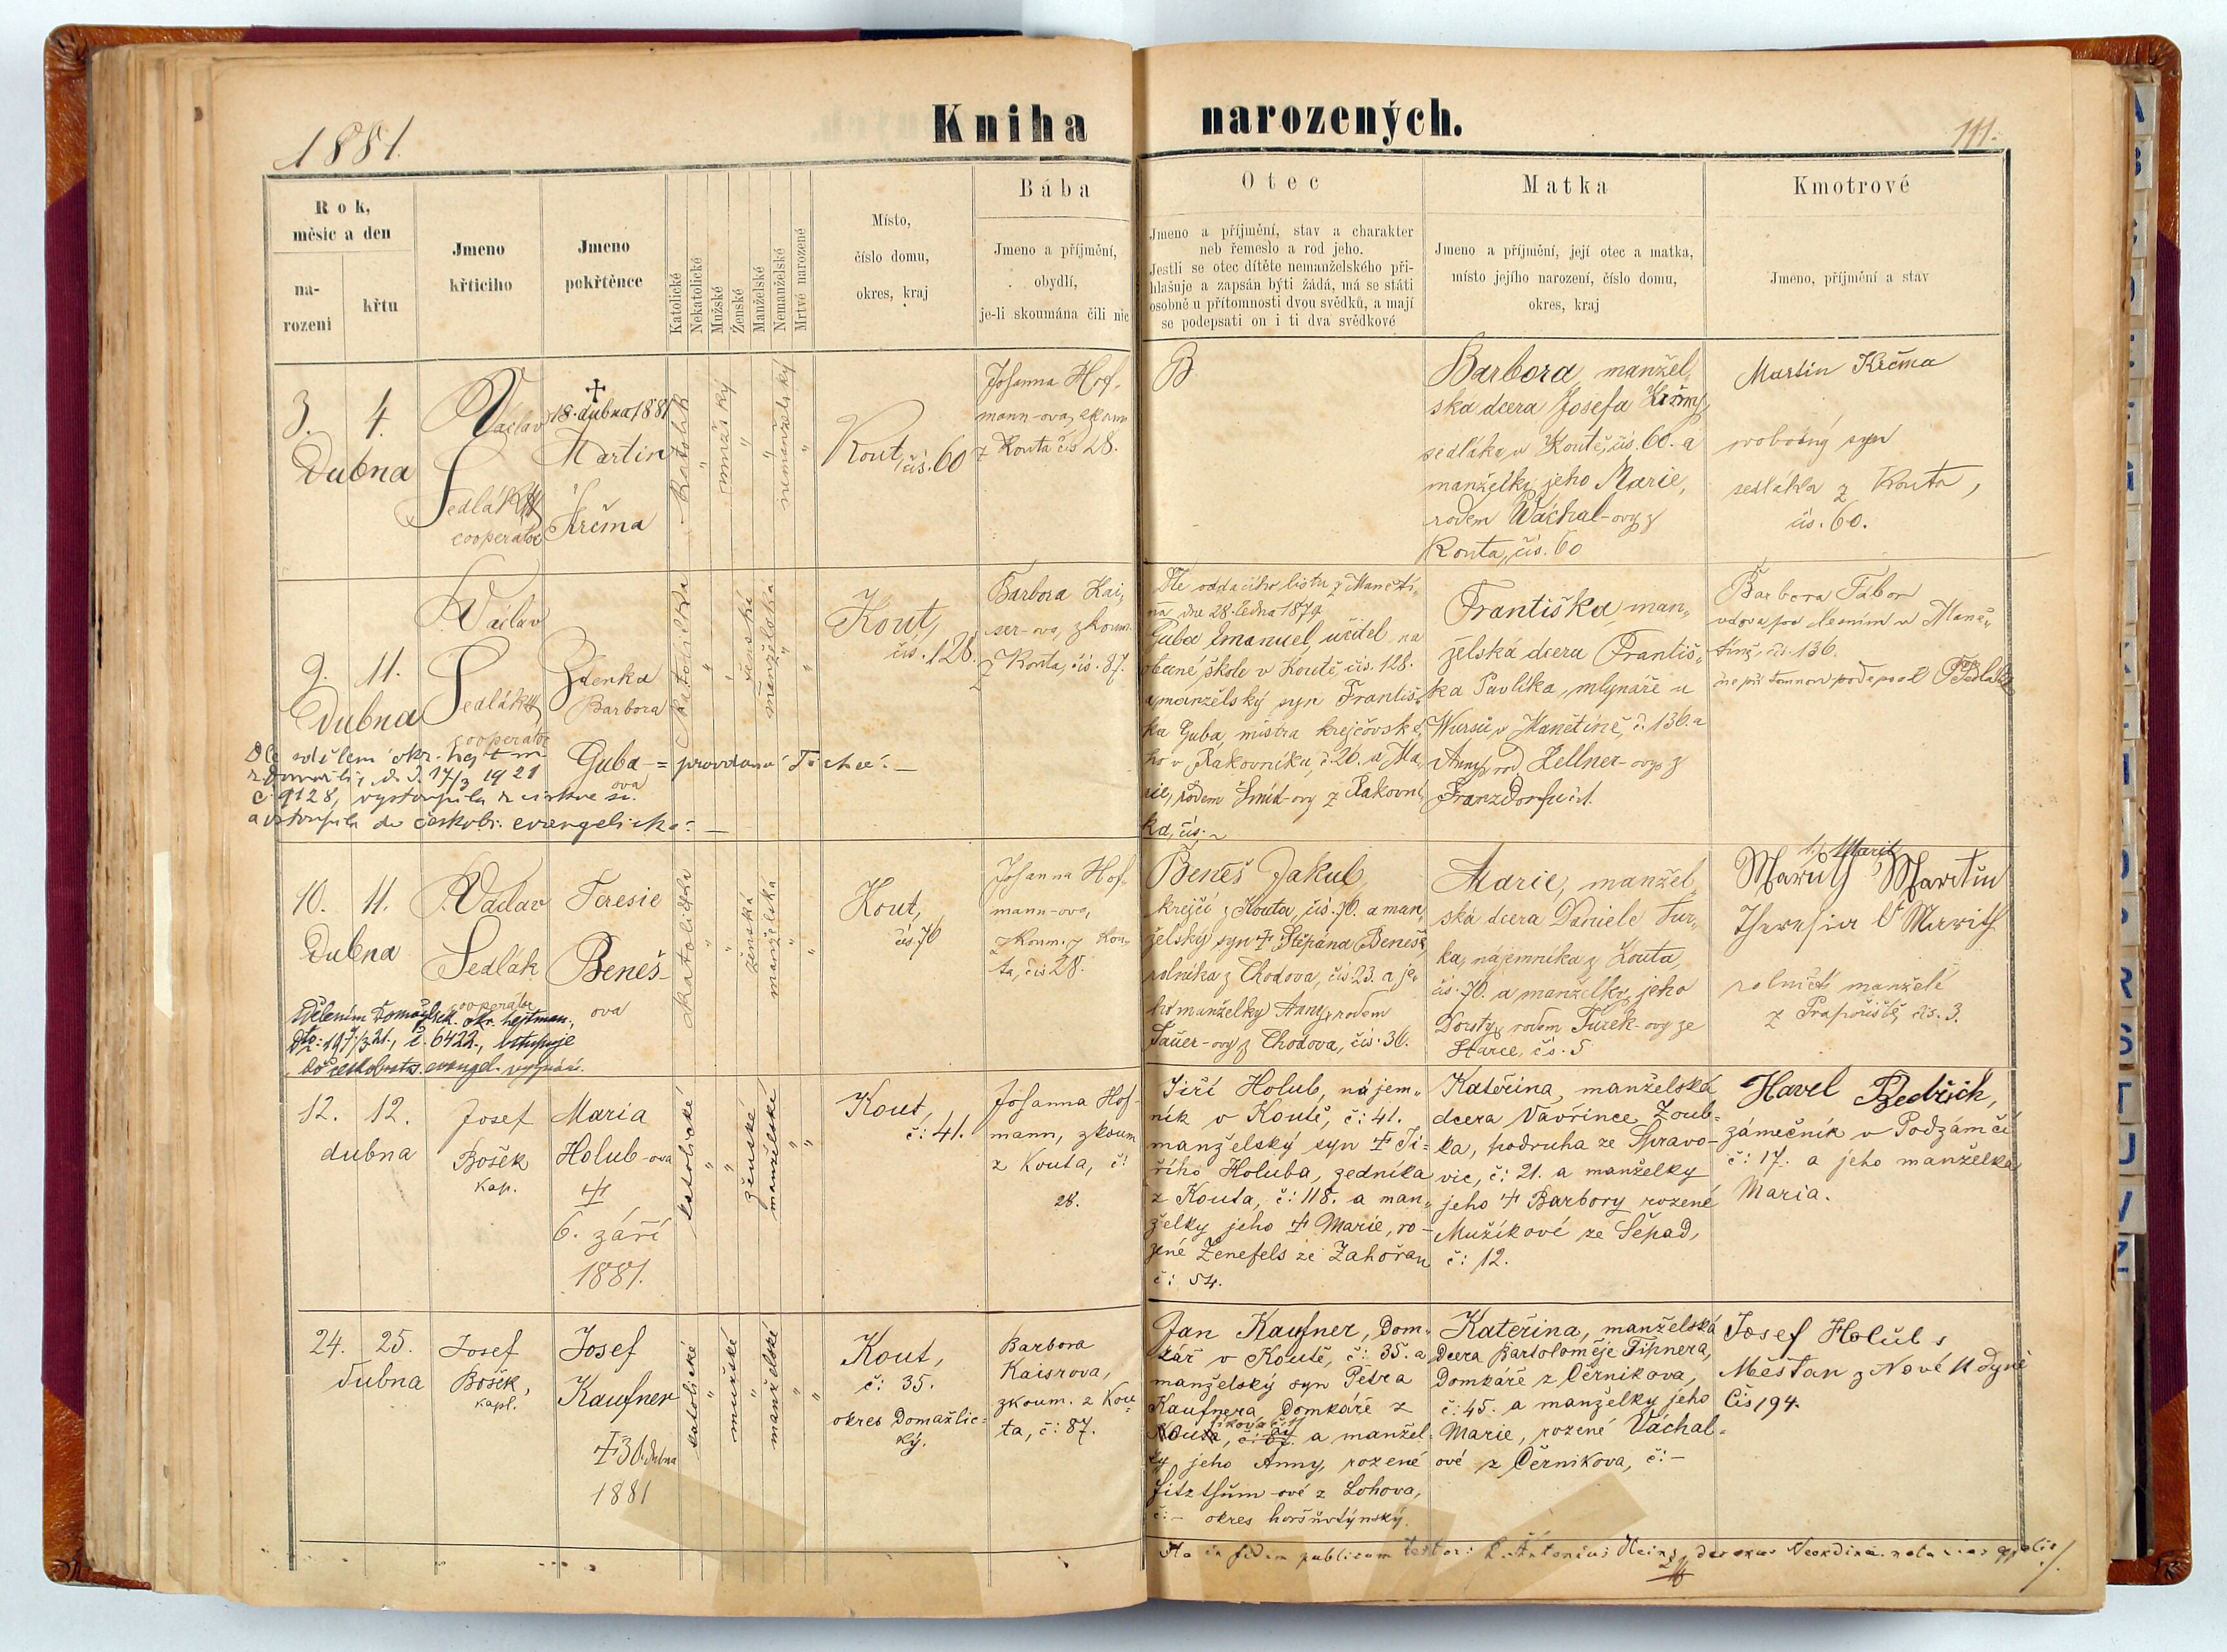 1881.
Kniha narozených.
111.
Rok,
měsíc a den
na-
rozeni
křtu
Jmeno
křtícího
Jmeno
pokřtěnce
Katolické
Nekatolické
Mužské
Ženské
Manželské
Nemanželské
Mrtvé narozené
Místo,
číslo domu,
okres, kraj
Bába
Jmeno a příjmění,
obydlí,
je-li skoumána čili nic
Otec
Jmeno a příjmění, stav a charakter
neb řemeslo a rod jeho.
Jestli se otec dítěte nemanželského při-
hlašuje a zapsán býti žádá, má se státi
osobně u přítomnosti dvou svědků, a mají
se podepsati on i ti dva svědkové
Matka
Jmeno a příjmění, její otec a matka,
místo jejího narození, číslo domu,
okres, kraj
Kmotrové
Jmeno, příjmění a stav
3. 4.
Dubna
Václav
Sedlák
cooperator
18. dubna 1881
Martin
Krčma
Katolík
"
mužský
"
"
nemanželský
"
Kout, čís. 60
Johanna Hof-
mann-ova, zkoum
z Kouta čís 28.
B
Barbora, manžel,
ska dcera Josefa Krčmy,
sedláka, v Koutě, čís. 60. a
manželky jeho Marie,
rodem Wáchal-ovy z
Kouta, čís. 60
Martin Krčma
svobodný syn
sedláka z Kouta,
čís. 60.
9. 11.
Dubna
Václav
Sedlák,
cooperator
Zdenka
Barbora
Guba = provdaná Tichá. —
ova
Dle sdělení okr. hejtm
z Domažlic d. d. 17/3 1921
č. 9128, vystoupila z církve
a vstoupila do českobr. evangelické. —
katolička
"
"
ženská
manželská
"
"
Kout,
čís. 128.
Barbora Kai,
ser-ova, zkoum.
z Kouta, čís. 87.
Dle oddacího listu z Maněti„
na, dne 28. ledna 1879
Guba Emanuel, učitel na
obecné škole v Koutě, čís. 128.
a manželský syn Františ„
ka Guba, mistra krejčovské„
ho v Rakovníku, č. 26. a Ma„
rie, rodem Šmíd-ovy z Rakovní„
ka, čís. ~
Františka, man„
želská dcera Františ„
ka Pavlíka, mlynáře u
Wursů v Manětíně, č. 136. a
Anny, rod. Zellner-ovy z
Franzdorfu čs.
Barbora Tábor
vdova pod Lesním v Maně„
tíně, čís. 136.
10. 11.
Dubna
Václav
Sedlák
cooperátor
Teresie
Beneš-
ova
Sdělením Domažlick. okr. hejtman.
dto: 19/3 21., č. 6422., vstupuje
do českobratrs. evangel. vyznání.
katolička
"
"
ženská
manželská
"
"
Kout,
čís 70
Johanna Hof„
mann-ova,
zkoum. z Kou„
ta, čís 28.
Beneš Jakub,
krejčí z Kouta, čís. 70. a man„
želský syn † Štěpána Beneše,
rolníka z Chodova, čís. 23. a je„
ho manželky Anny, rodem
Tauer-ovy z Chodova, čís. 36.
Marie, manžel„
ská dcera Daniele Tur„
ka, nájemníka z Kouta,
čís. 70. a manželky jeho
Doroty, rodem Turek-ovy ze
Starce, čís. 5
Maruth Martin
Theresia Marith
rolničtí manželé
z Prapořiště, čís. 3.
12. 12.
dubna
Josef
Bošek
kap.
Maria
Holub-ova
†
6. září
1881.
katolické
"
"
ženské
manželské
"
"
Kout,
č: 41.
Johanna Hof-
mann, zkoum
z Kouta, č:
28.
Jiří Holub, nájem„
ník v Koutě, č: 41.
manželský syn † Ji=
řího Holuba, zedníka
z Kouta, č: 118. a man„
želky jeho † Marie, ro-
zené Ženefels ze Zahořan
č: 54.
Kateřina, manželská
dcera Vavřince Zoub=
ka, podruha ze Spravo-
vic, č: 21. a manželky
jeho † Barbory rozené
Mužíkové ze Sépad,
č: 12.
Havel Bedřich,
zámečník v Podzámčí
č: 17. a jeho manželka
Maria.
24. 25.
dubna
Josef
Bošek,
kapl.
Josef
Kaufner
† 30. dubna
1881
katolické
"
mužské
"
manželské
"
"
Kout,
č: 35.
okres Domažlic=
ký.
Barbora
Kaisrova,
zkoum. z Kou=
ta, č: 87.
Jan Kaufner, Dom„
kář v Koutě, č: 35. a
manželský syn Petra
Kaufnera Domkáře z
Kouta, a manžel=
ky jeho Anny, rozené
Fitzthum-ové z Lohova,
č: - okres horšůvtýnský.
Kateřina, manželská
Dcera Bartoloměje Tipnera,
Domkáře z Černikova,
č: 45. a manželky jeho
Marie, rozené Váchal=
ové z Černikova, č: -
Josef Holub
Měšťan z Nové Kdyně
Čis 194.
Ita in fidem publicam testor: Antonius Heinz, decanus Neokdinensis